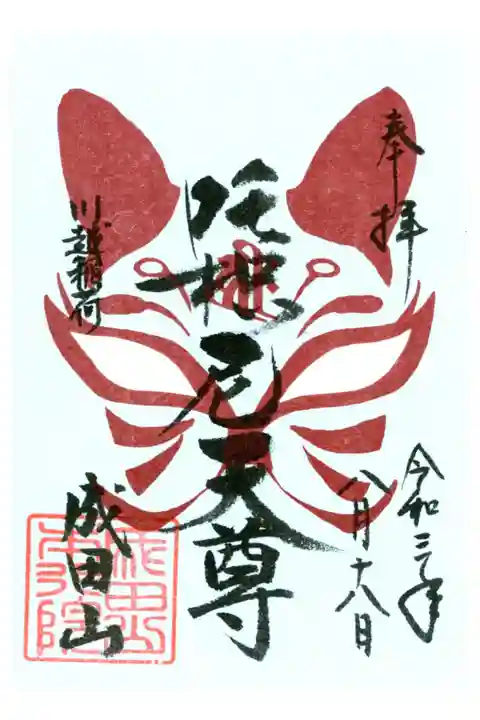 奉拝
令和三年
八月十八日
吒枳尼天尊
川越稲荷
成田山
成田山本行院